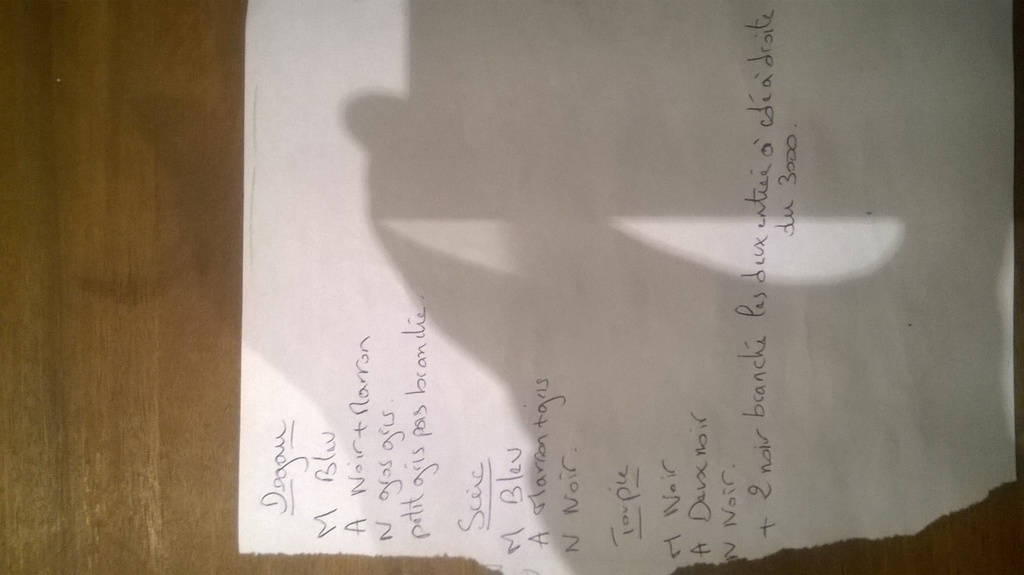 Dogau
M Bleu
A Noir + Marron
N gros gris.
petit gris pas branché.
Scie
M Bleu
A Marron + gris
N Noir.
Toupie
M Noir
A Deux noir
N Noir.
+ 2 noir branché les deux entrée à côté à droite
du 3000.